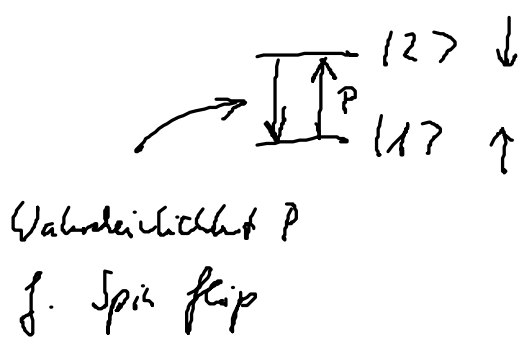 |2> ↓
P
|1> ↑
Wahrscheinlichkeit P
f. Spin flip